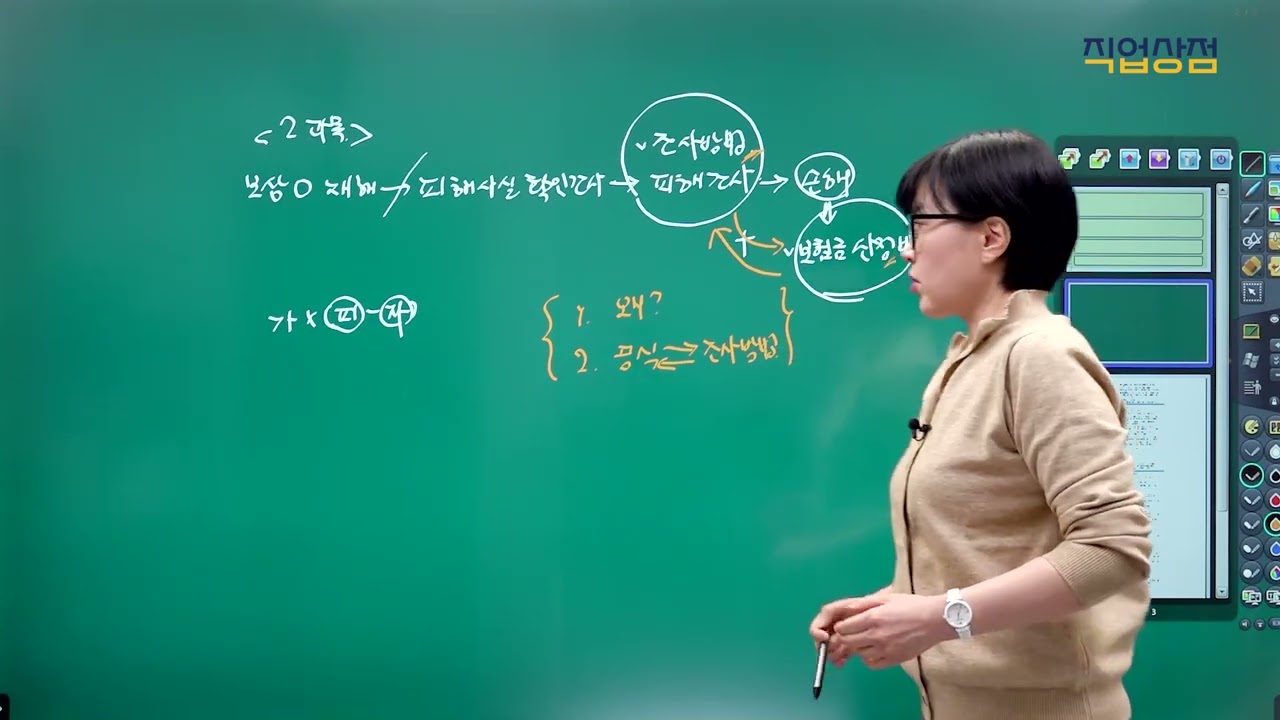 직업상점
<2 과목>
보상O 재해 → 피해사실 확인조사 → 피해조사 → 손해
✓ 조사방법
✓ 보험금 산정
가 x 피 - 자
1. 왜?
2. 공식 ⇄ 조사방법
3